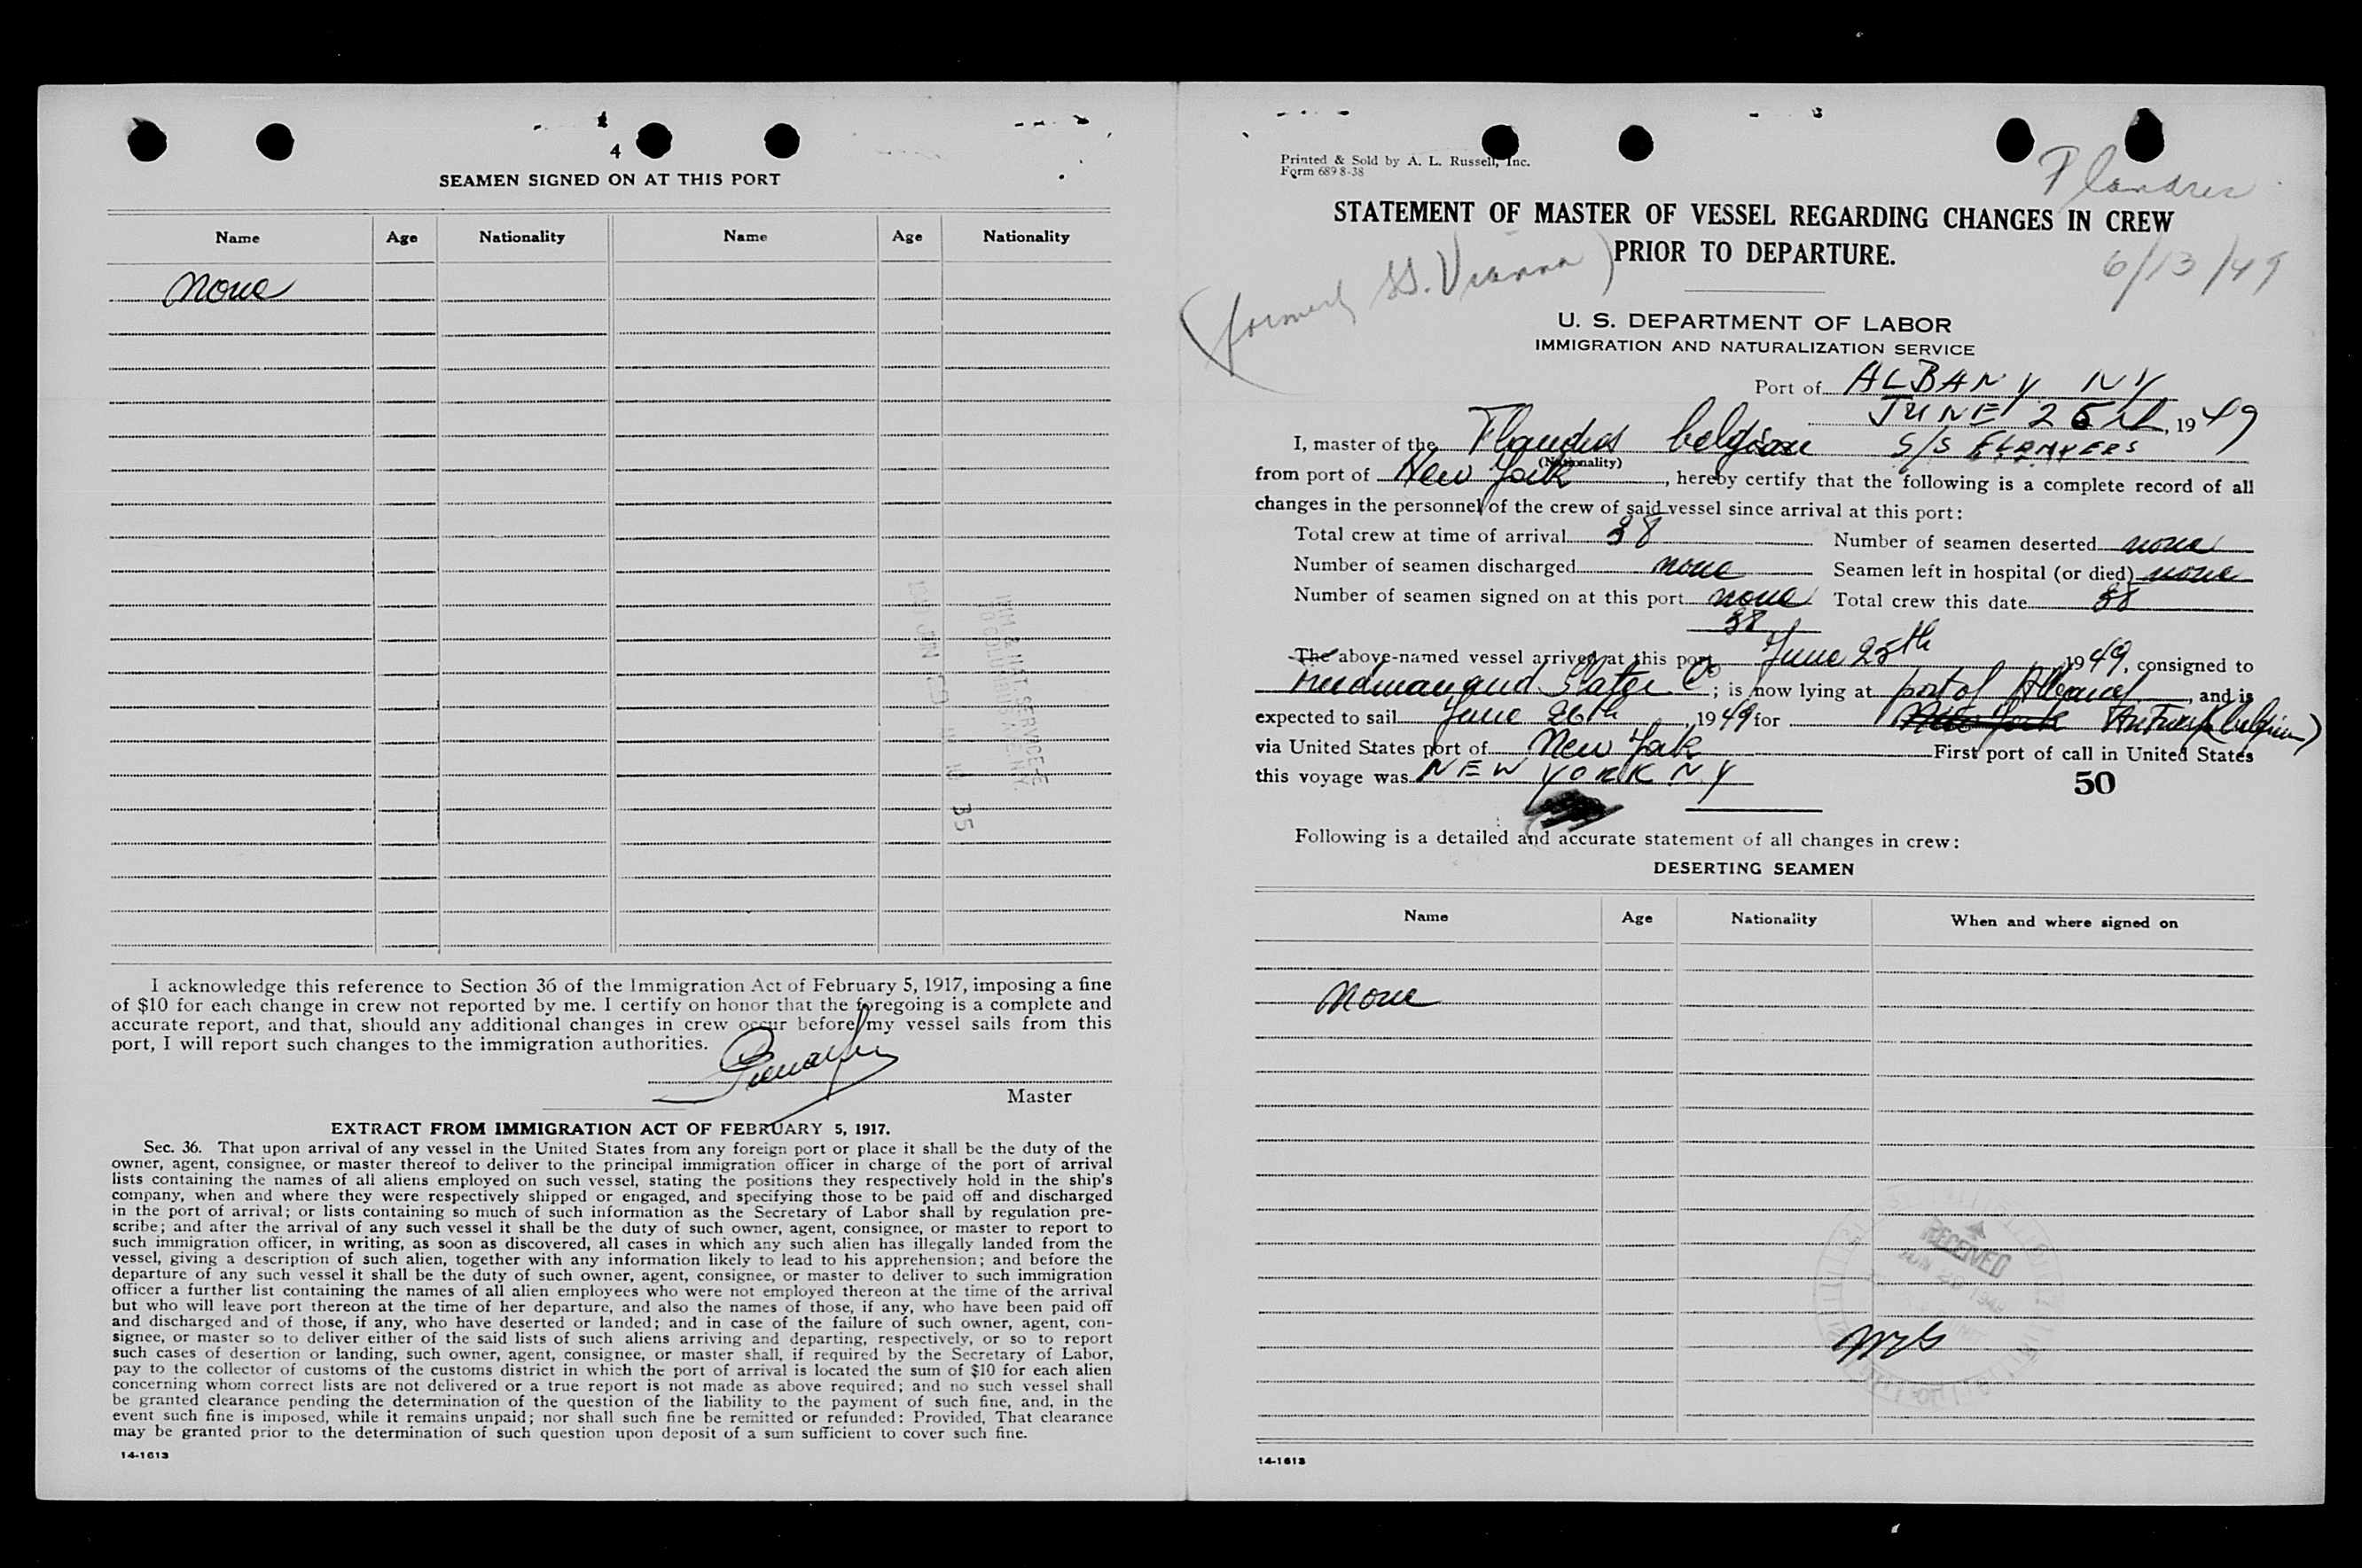 4
SEAMEN SIGNED ON AT THIS PORT
Name Age Nationality Name Age Nationality
None
I acknowledge this reference to Section 36 of the Immigration Act of February 5, 1917, imposing a fine
of $10 for each change in crew not reported by me. I certify on honor that the foregoing is a complete and
accurate report, and that, should any additional changes in crew occur before my vessel sails from this
port, I will report such changes to the immigration authorities.
Master
EXTRACT FROM IMMIGRATION ACT OF FEBRUARY 5, 1917.
Sec. 36. That upon arrival of any vessel in the United States from any foreign port or place it shall be the duty of the
owner, agent, consignee, or master thereof to deliver to the principal immigration officer in charge of the port of arrival
lists containing the names of all aliens employed on such vessel, stating the positions they respectively hold in the ship's
company, when and where they were respectively shipped or engaged, and specifying those to be paid off and discharged
in the port of arrival; or lists containing so much of such information as the Secretary of Labor shall by regulation pre-
scribe; and after the arrival of any such vessel it shall be the duty of such owner, agent, consignee, or master to report to
such immigration officer, in writing, as soon as discovered, all cases in which any such alien has illegally landed from the
vessel, giving a description of such alien, together with any information likely to lead to his apprehension; and before the
departure of any such vessel it shall be the duty of such owner, agent, consignee, or master to deliver to such immigration
officer a further list containing the names of all alien employees who were not employed thereon at the time of the arrival
but who will leave port thereon at the time of her departure, and also the names of those, if any, who have been paid off
and discharged and of those, if any, who have deserted or landed; and in case of the failure of such owner, agent, con-
signee, or master so to deliver either of the said lists of such aliens arriving and departing, respectively, or so to report
such cases of desertion or landing, such owner, agent, consignee, or master shall, if required by the Secretary of Labor,
pay to the collector of customs of the customs district in which the port of arrival is located the sum of $10 for each alien
concerning whom correct lists are not delivered or a true report is not made as above required; and no such vessel shall
be granted clearance pending the determination of the question of the liability to the payment of such fine, and, in the
event such fine is imposed, while it remains unpaid; nor shall such fine be remitted or refunded: Provided, That clearance
may be granted prior to the determination of such question upon deposit of a sum sufficient to cover such fine.
14-1613
Printed & Sold by A. L. Russell, Inc.
Form 689 8-38
Flandres
STATEMENT OF MASTER OF VESSEL REGARDING CHANGES IN CREW
PRIOR TO DEPARTURE.
6/13/49
(formerly SS. Vianna)
U. S. DEPARTMENT OF LABOR
IMMIGRATION AND NATURALIZATION SERVICE
Port of ALBANY NY
JUNE 25th, 1949
I, master of the Flandres belgian S/S FLANDERS
(Nationality)
from port of New York, hereby certify that the following is a complete record of all
changes in the personnel of the crew of said vessel since arrival at this port:
Total crew at time of arrival 38 Number of seamen deserted none
Number of seamen discharged none Seamen left in hospital (or died) none
Number of seamen signed on at this port none Total crew this date 38
38
The above-named vessel arrived at this port June 25th 1949, consigned to
and Slater Co; is now lying at port of Albany, and is
expected to sail June 26th, 1949 for New York Antwerp (belgium)
via United States port of New York First port of call in United States
this voyage was NEW YORK NY
50
Following is a detailed and accurate statement of all changes in crew:
DESERTING SEAMEN
Name Age Nationality When and where signed on
None
RECEIVED
14-1613